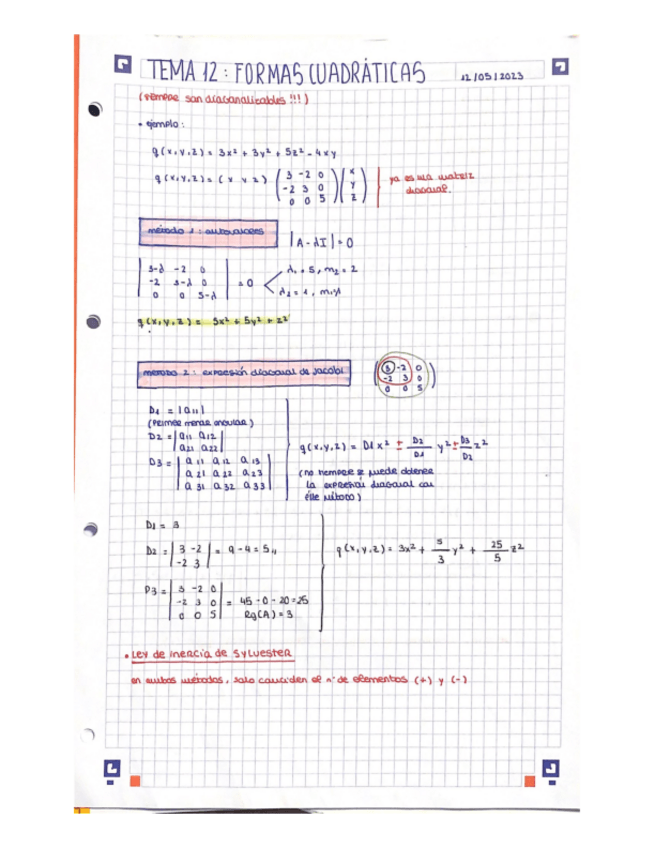 TEMA 12: FORMAS CUADRÁTICAS 12/05/2023
(siempre son diagonalizables!!!)
• ejemplo:
q(x,y,z) = 3x² + 3y² + 5z² - 4xy
q(x,y,z) = (x y z) (3 -2 0 / -2 3 0 / 0 0 5) (x / y / z) ya es una matriz diagonal.
método 1: autovalores |A - λI| = 0
|3-λ -2 0 / -2 3-λ 0 / 0 0 5-λ| = 0 λ₁ = 5, m₁ = 2
λ₂ = 1, m₂=1
q(x,y,z) = 5x² + 5y² + z²
método 2: expresión diagonal de Jacobi (3 -2 0 / -2 3 0 / 0 0 5)
D1 = |a11|
(Primer menor angular)
D2 = |a11 a12 / a21 a22|
D3 = |a11 a12 a13 / a21 a22 a23 / a31 a32 a33|
q(x,y,z) = D1x² ± D2/D1 y² ± D3/D2 z²
(no siempre se puede obtener
la expresión diagonal con
este método)
D1 = 3
D2 = |3 -2 / -2 3| = 9 - 4 = 5
D3 = |3 -2 0 / -2 3 0 / 0 0 5| = 45 - 0 - 20 = 25
Rg(A) = 3
q(x,y,z) = 3x² + 5/3 y² + 25/5 z²
• Ley de inercia de Sylvester
en ambos métodos, solo coinciden el nº de elementos (+) y (-)